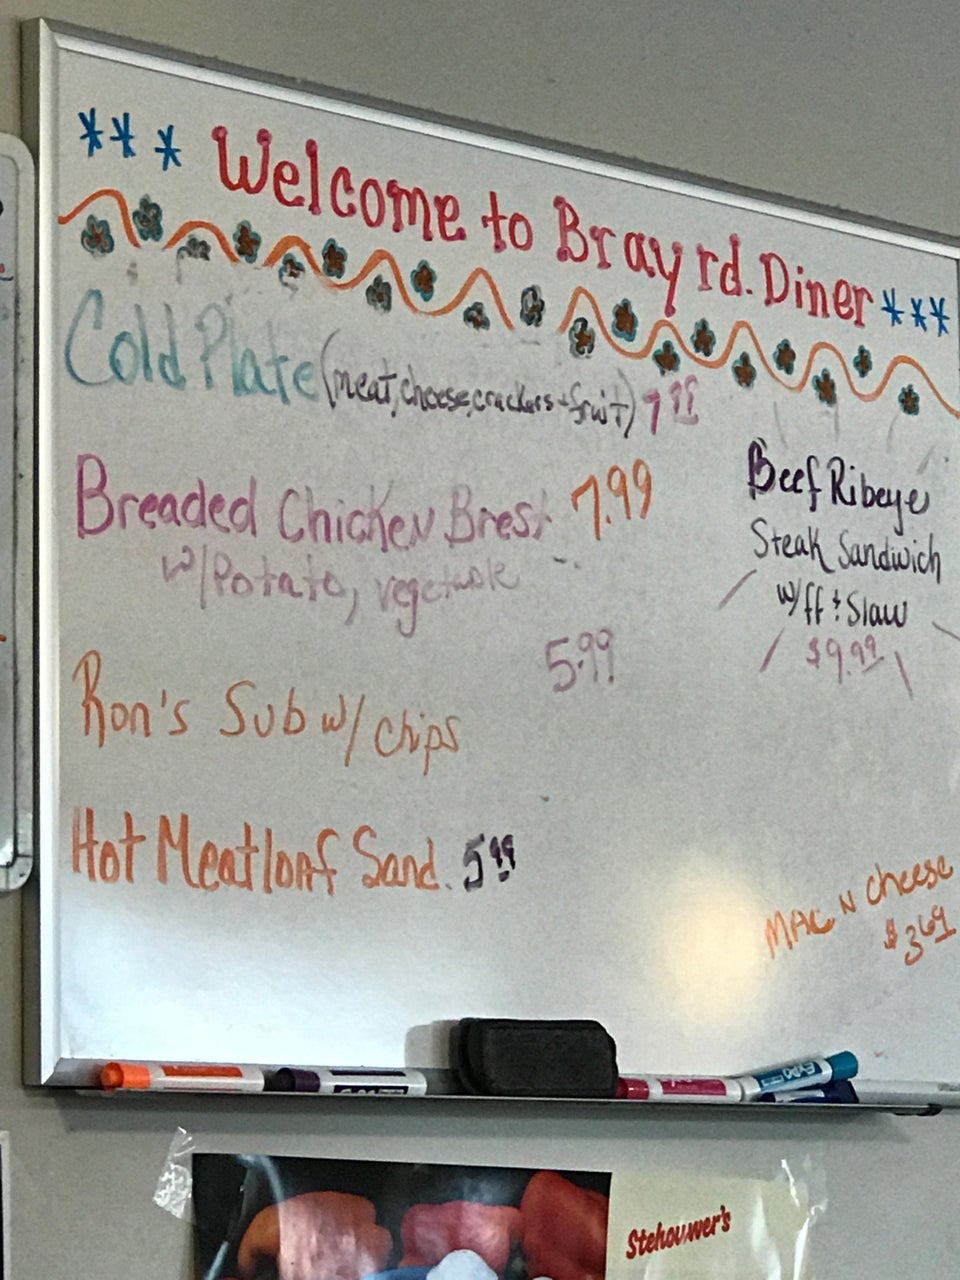 *** Welcome to Bray rd. Diner ***
Cold Plate (meat, cheese, crackers + fruit) 7.99
Breaded Chicken Brest 7.99
w/Potato, vegetable
Beef Ribeye
Steak Sandwich
w/ff + Slaw
$9.99
5.99
Ron's Sub w/ chips
Hot Meatloaf Sand. 5.99
MAC N Cheese
$3.69
EXPO
Stehouwer's